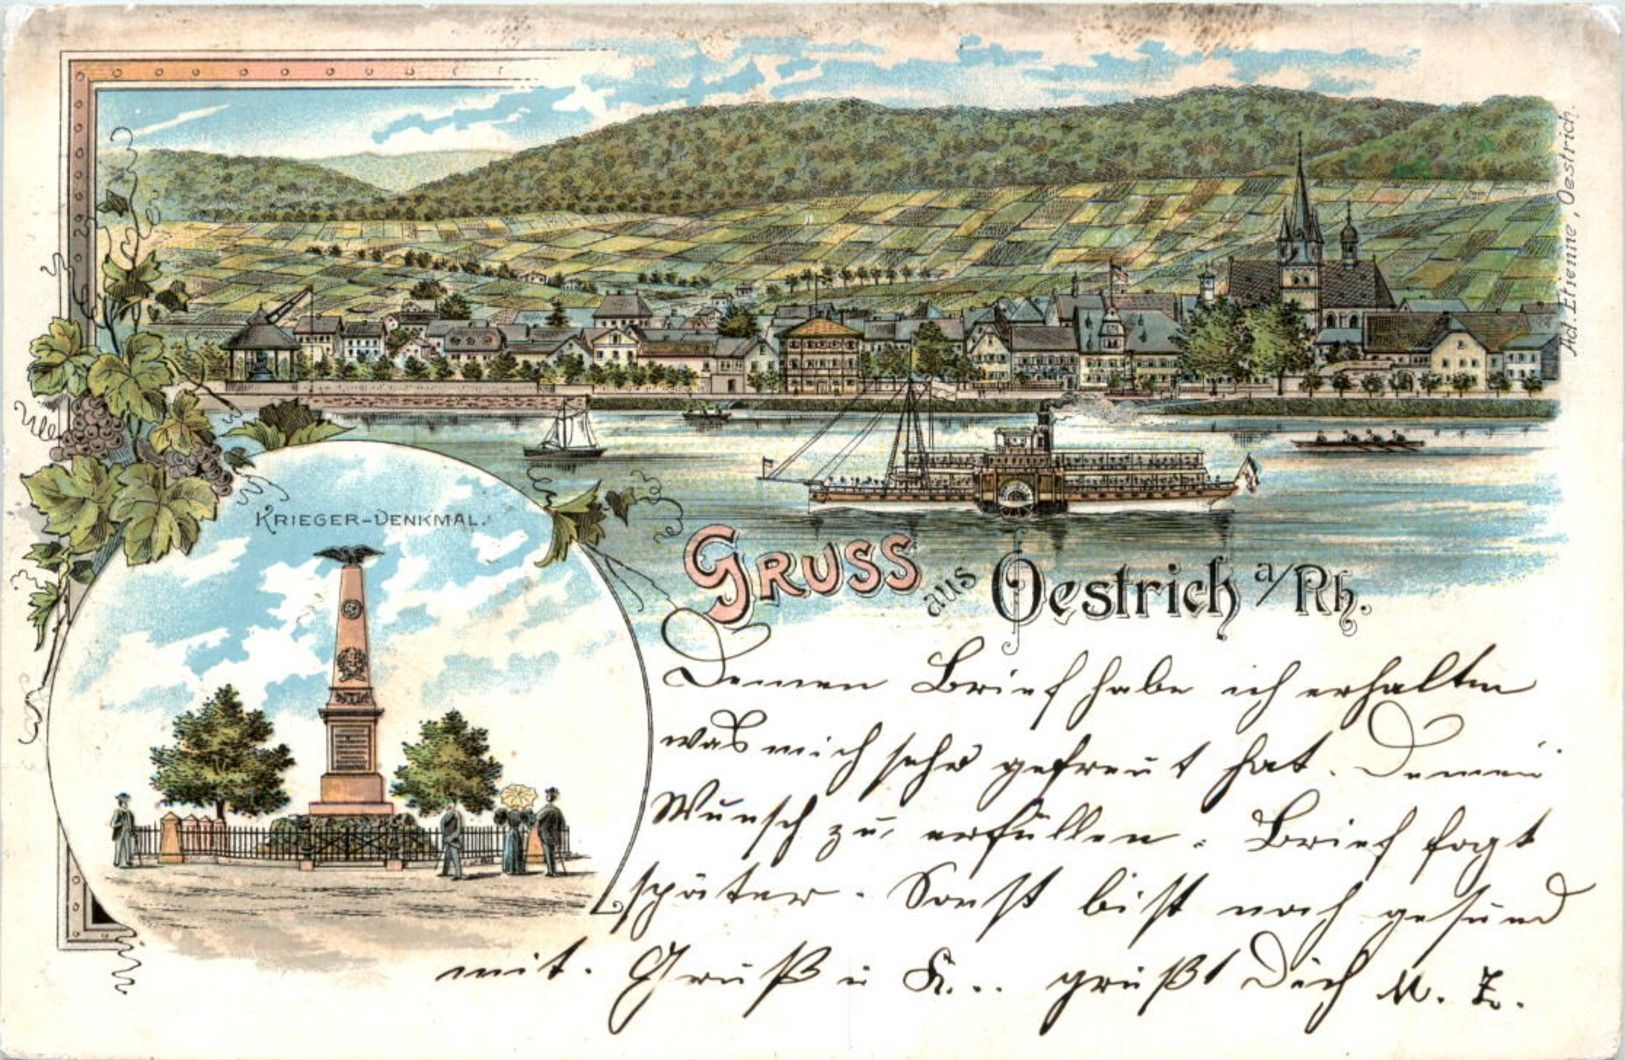 KRIEGER-DENKMAL.
Gruss aus Oestrich a/Rh.
Ad. Etienne, Oestrich.
Deinen Brief habe ich erhalten
was mich sehr gefreut hat. Deinen
Wunsch zu erfüllen. Brief fogt
später. Sonst bist noch gesund
mit. Gruß u K... grüßt Dich M. Z.